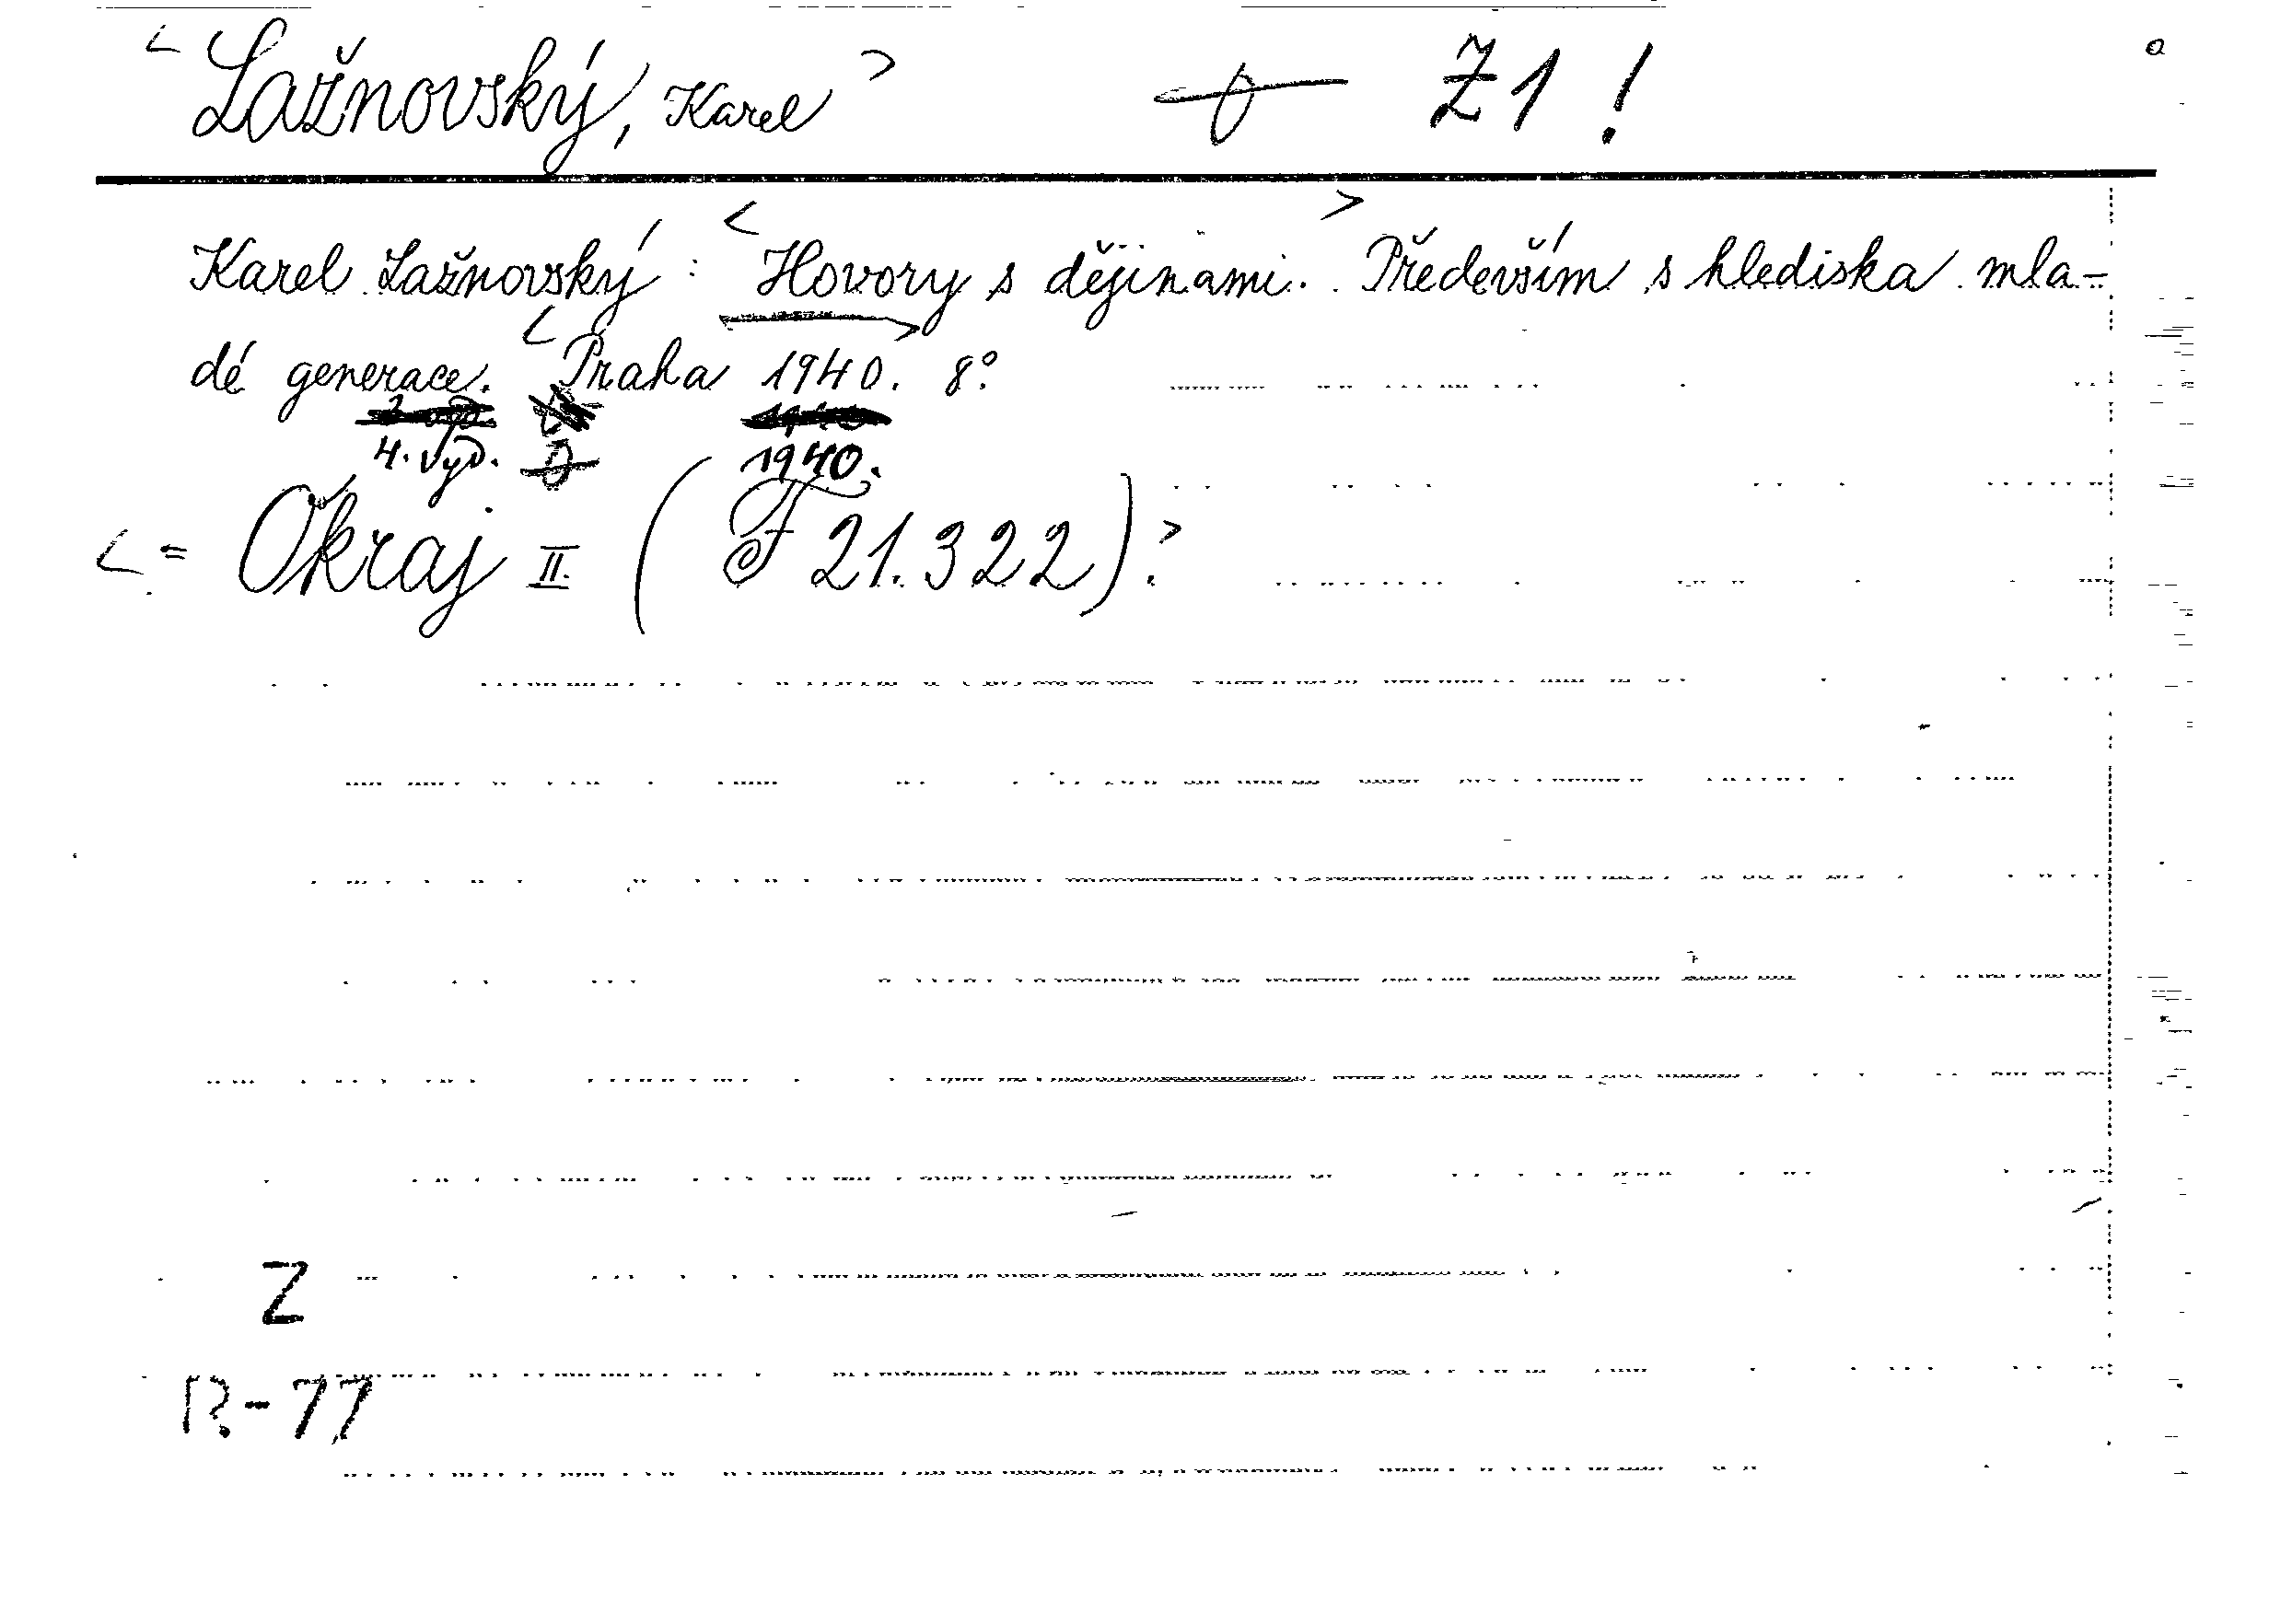 < Lažnovský, Karel > Z1!
Karel Lažnovský: < Hovory s dějinami. > Především s hlediska mla-
dé generace. < Praha 1940. 8°.
4. vyd. 1940.
< = Okraj II. (F 21.322). >
Z
R-77